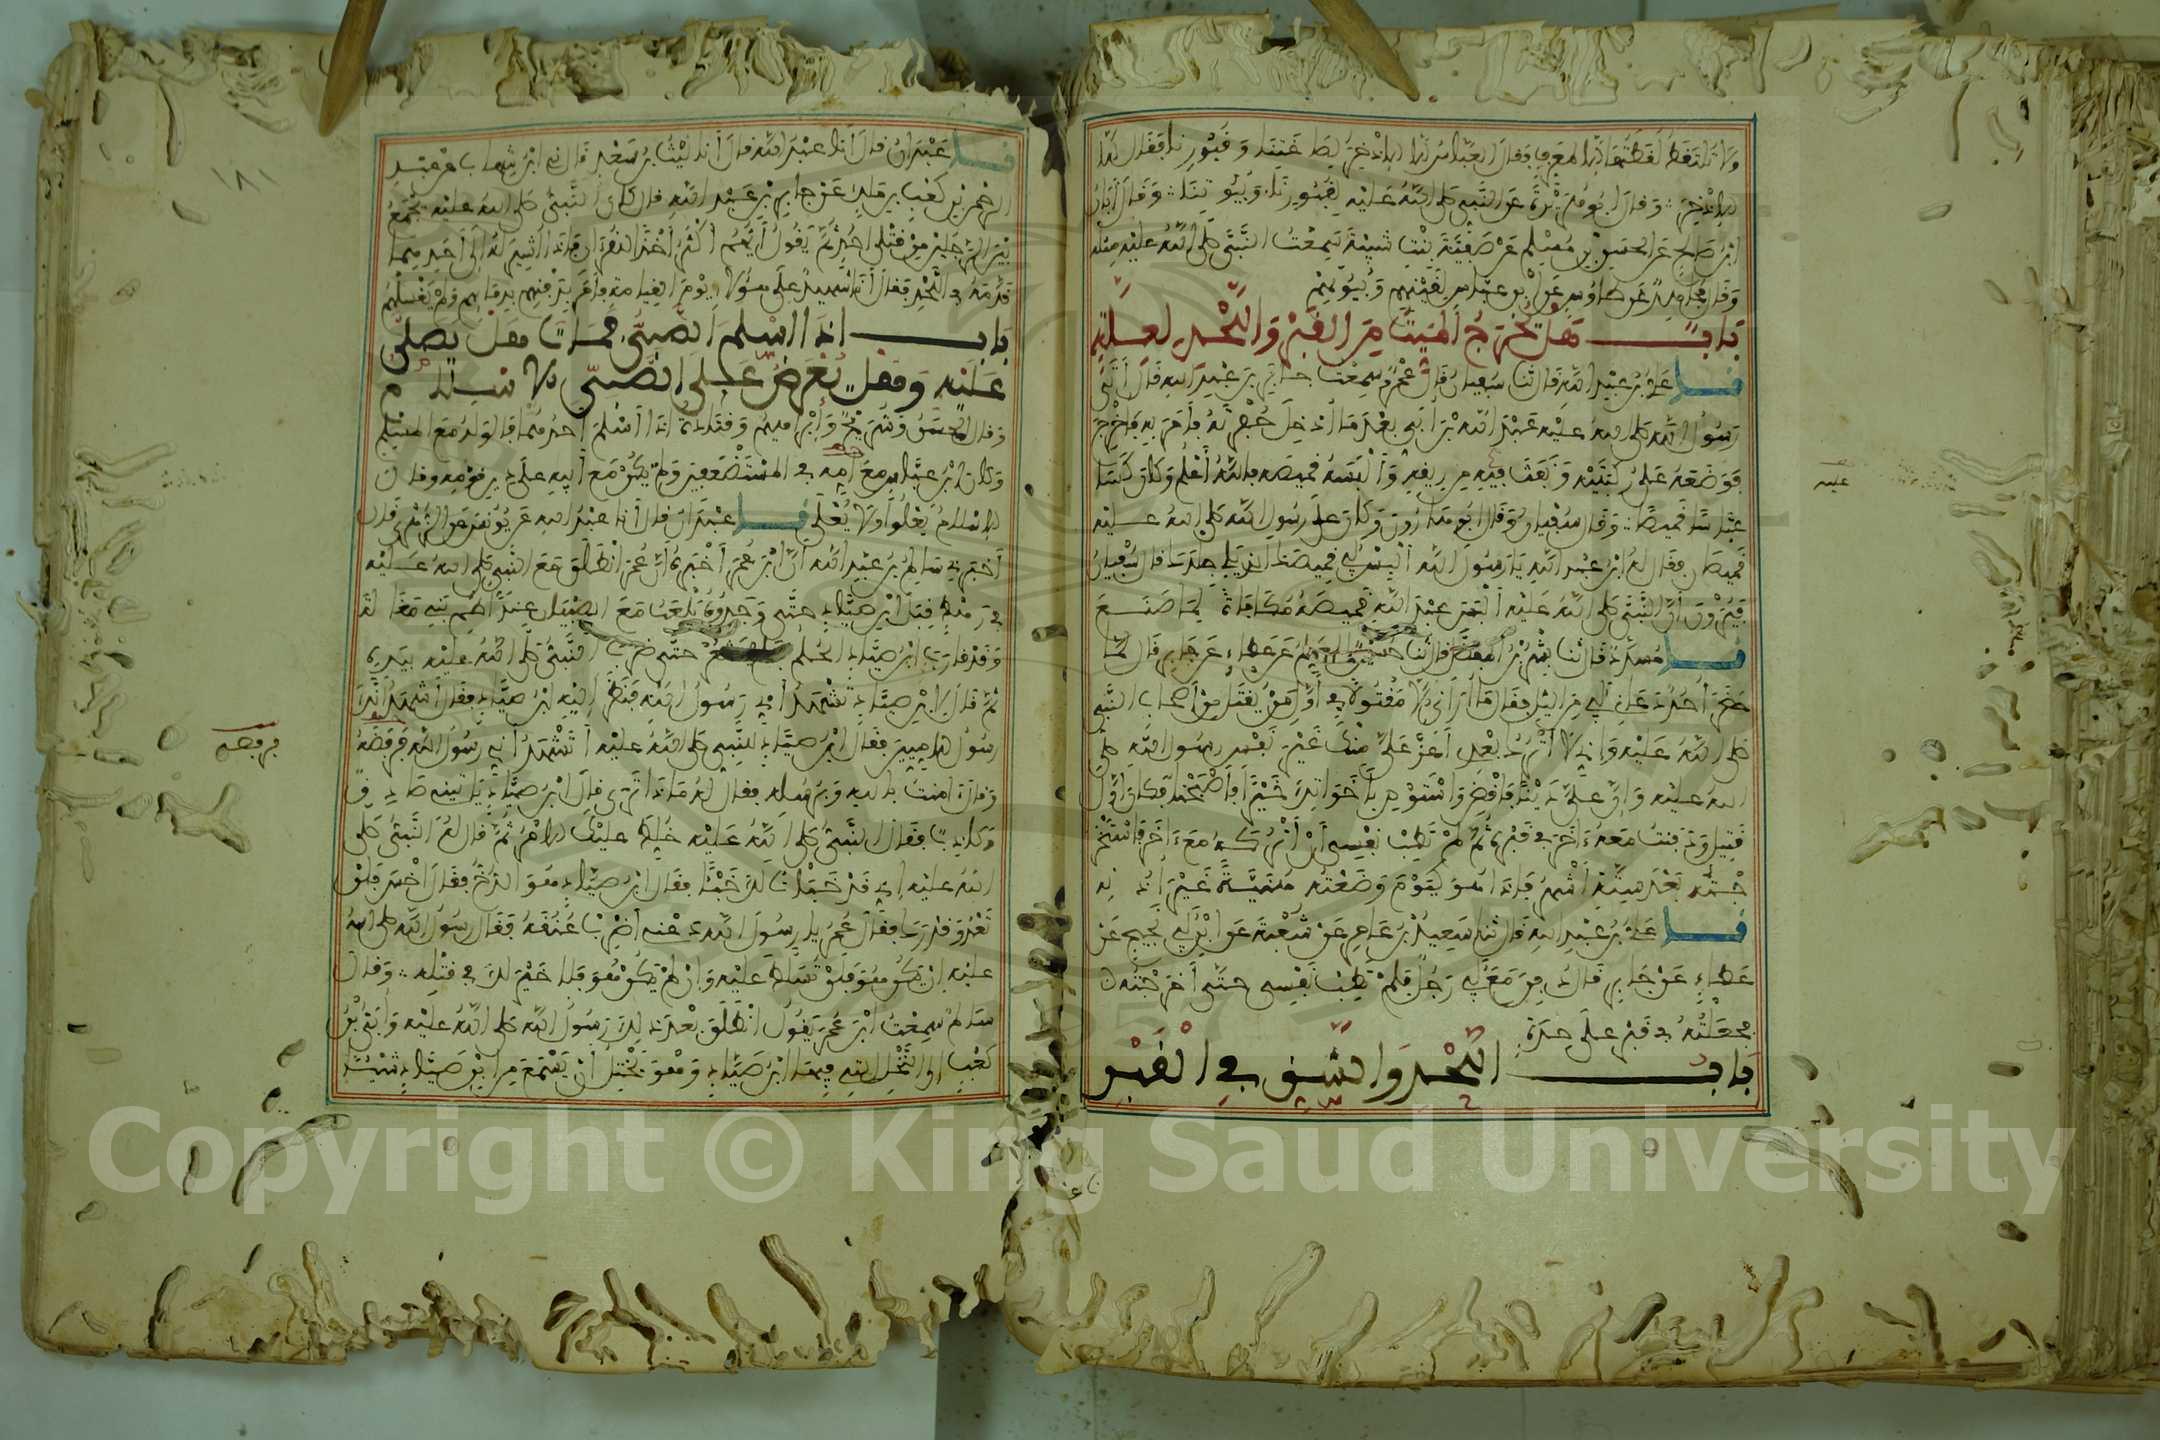 ولا تلتقط لقطتها إلا لمعرف فقال العباس إلا الإذخر لصاغتنا وقبورنا فقال إلا
الإذخر وقال أبو هريرة عن النبي صلى الله عليه لقبورنا وبيوتنا وقال أبان
ابن صالح عن الحسن بن مسلم عن صفية بنت شيبة سمعت النبي صلى الله عليه مثله
وقال مجاهد عن طاوس عن ابن عباس لقينهم وبيوتهم
باب هل يخرج الميت من القبر واللحد لعلة
نا علي بن عبد الله قال نا سفيان قال عمرو سمعت جابر بن عبد الله قال أتى
رسول الله صلى الله عليه عبد الله بن أبي بعد ما أدخل حفرته فأمر به فأخرج
فوضعه على ركبتيه ونفث فيه من ريقه وألبسه قميصه فالله أعلم وكان كسا
عباسا قميصا وقال سفيان وقال أبو هارون وكان على رسول الله صلى الله عليه
قميصان فقال له ابن عبد الله يا رسول الله ألبس أبي قميصك الذي يلي جلدك قال سفيان
فيرون أن النبي صلى الله عليه ألبس عبد الله قميصه مكافاة لما صنع
نا مسدد قال نا بشر بن المفضل قال نا حسين المعلم عن عطاء عن جابر قال لما
حضر أحد دعاني أبي من الليل فقال ما أراني إلا مقتولا في أول من يقتل من أصحاب النبي
صلى الله عليه وإني لا أترك بعدي أعز علي منك غير نفس رسول الله صلى
الله عليه وإن علي دينا فاقض واستوص بأخواتك خيرا فأصبحنا فكان أول
قتيل ودفنت معه آخر في قبره ثم لم تطب نفسي أن أتركه مع آخر فاستخر
جته بعد ستة أشهر فإذا هو كيوم وضعته هنية غير أذنه
نا علي بن عبد الله قال نا سعيد بن عامر عن شعبة عن ابن أبي نجيح عن
عطاء عن جابر قال دفن مع أبي رجل فلم تطب نفسي حتى أخرجته
فجعلته في قبر على حدة
باب اللحد والشق في القبر
نا عبدان قال أنا عبد الله قال أنا ليث بن سعد قال ني ابن شهاب عن عبد
الرحمن بن كعب بن مالك عن جابر بن عبد الله قال كان النبي صلى الله عليه يجمع
بين الرجلين من قتلى أحد ثم يقول أيهم أكثر أخذا للقرءان فإذا أشير له إلى أحدهما
قدمه في اللحد فقال أنا شهيد على هؤلاء يوم القيامة فأمر بدفنهم بدمائهم ولم يغسلهم
باب إذا أسلم الصبي فمات هل يصلى
عليه وهل يعرض على الصبي الإسلام
وقال الحسن وشريح وإبراهيم وقتادة إذا أسلم أحدهما فالولد مع المسلم
وكان ابن عباس مع أمه في المستضعفين ولم يكن مع أبيه على دين قومه وقال
الإسلام يعلو ولا يعلى نا عبدان قال أنا عبد الله عن يونس عن الزهري قال
أخبرني سالم بن عبد الله أن ابن عمر أخبره أن عمر انطلق مع النبي صلى الله عليه
في رهط قبل ابن صياد حتى وجدوه يلعب مع الصبيان عند أطم بني مغالة
وقد قارب ابن صياد الحلم فلم يشعر حتى ضرب النبي صلى الله عليه بيده
ثم قال لابن صياد تشهد أني رسول الله فنظر إليه ابن صياد فقال أشهد أنك
رسول الأميين فقال ابن صياد للنبي صلى الله عليه أتشهد أني رسول الله فرفضه
وقال آمنت بالله وبرسله فقال له ماذا ترى قال ابن صياد يأتيني صادق
وكاذب فقال النبي صلى الله عليه خلط عليك الأمر ثم قال له النبي صلى
الله عليه إني قد خبأت لك خبئا فقال ابن صياد هو الدخ فقال اخسأ فلن
تعدو قدرك فقال عمر يا رسول الله دعني أضرب عنقه فقال رسول الله صلى الله
عليه إن يكن هو فلن تسلط عليه وإن لم يكن هو فلا خير لك في قتله وقال
سالم سمعت ابن عمر يقول انطلق بعد ذلك رسول الله صلى الله عليه وأبي بن
كعب إلى النخل التي فيها ابن صياد وهو يختل أن يسمع من ابن صياد شيئا
١٨١
فرفصه
عليه
Copyright © King Saud University